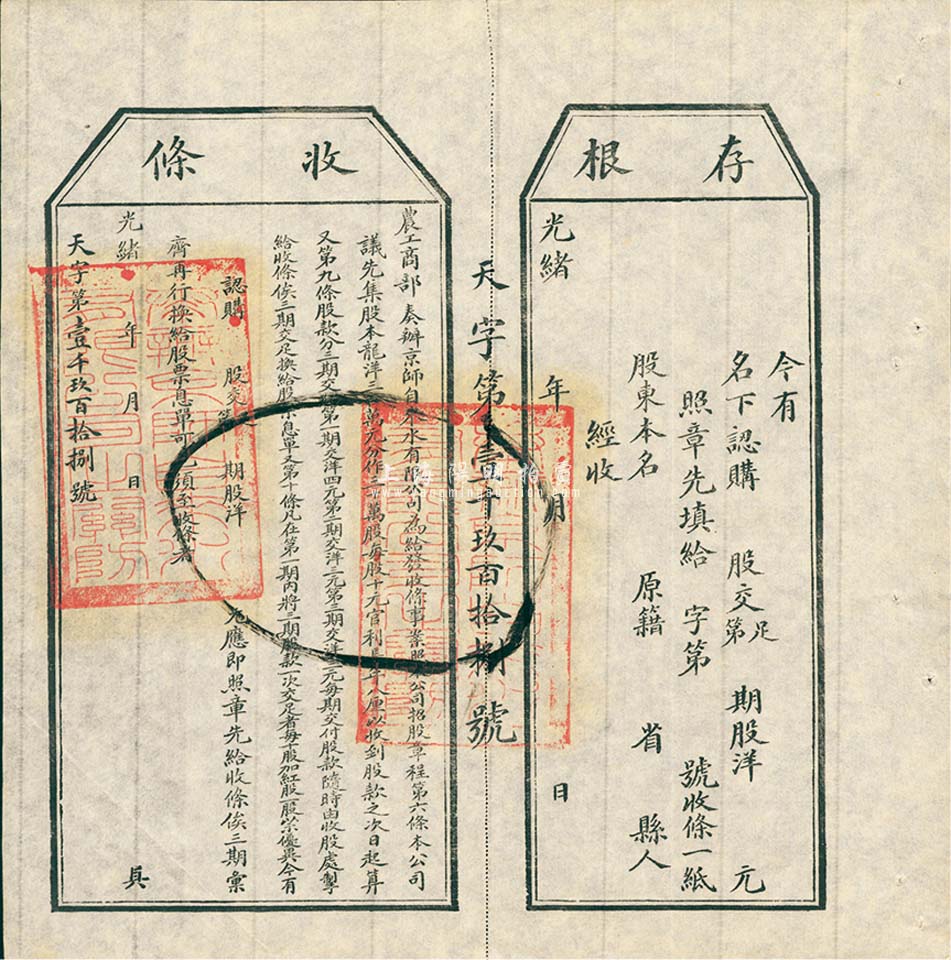 存根
今有
名下認購 股交足第 期股洋 元
照章先填給 字第 號收條一紙
股東本名 原籍 省 縣人
經收
光緒 年 月 日
天字第壹千玖百拾捌號
收條
農工商部奏辦京師自來水有限公司為給發收條事業照本公司招股章程第六條本公司
議先集股本龍洋三百萬元分作三十萬股每股十元官利長年八厘以收到股款之次日起算
又第九條股款分三期交納第一期交洋四元第二期交洋三元第三期交洋三元每期交付股款隨時由收股處掣
給收條俟三期交足換給股票息單又第十條凡在第一期內將三期股款一次交足者每十股加紅股一股以示優異今有
認購 股交足第 期股洋 元應即照章先給收條俟三期彙
齊再行換給股票息單可也須至收條者
光緒 年 月 日 具
天字第壹千玖百拾捌號